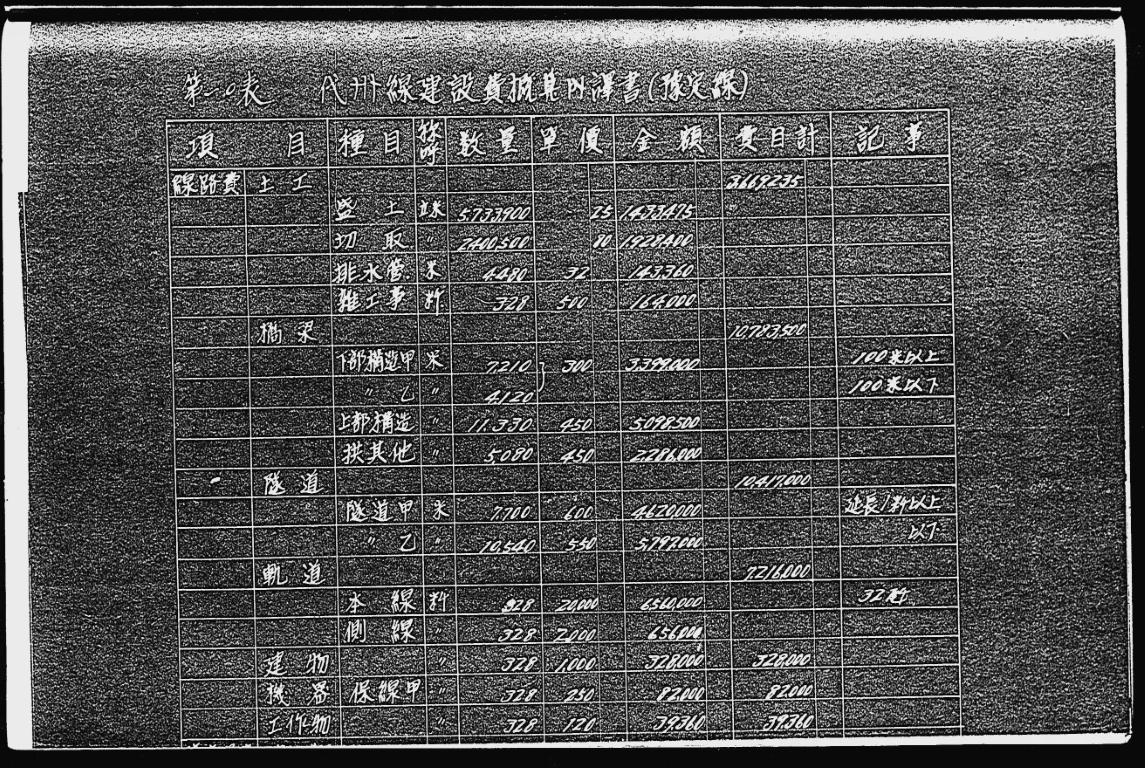 第一〇表 代州線建設費概算内譯書(豫定線)
項目 種目 称呼 数量 單價 金額 費目計 記事
線路費 土工 3,669,235
盛土 立米 5,733,900 25 1,433,475
切取 〃 2,400,500 80 1,928,400
排水管 米 4,480 32 143,360
雜工事 粁 328 500 164,000
橋梁 10,783,500
下部構造甲 米 7,210 300 3,399,000 100米以上
〃 乙 〃 4,120 100米以下
上部構造 〃 11,330 450 5,098,500
拱其他 〃 5,080 450 2,286,000
隧道 10,417,000
隧道甲 米 7,700 600 4,620,000 延長1粁以上
〃 乙 〃 10,540 550 5,797,000 以下
軌道 7,216,000
本線 粁 328 20,000 6,560,000 32瓩
側線 〃 328 2,000 656,000
建物 〃 328 1,000 328,000 328,000
機器 保線甲 〃 328 250 82,000 82,000
工作物 〃 328 120 39,360 39,360